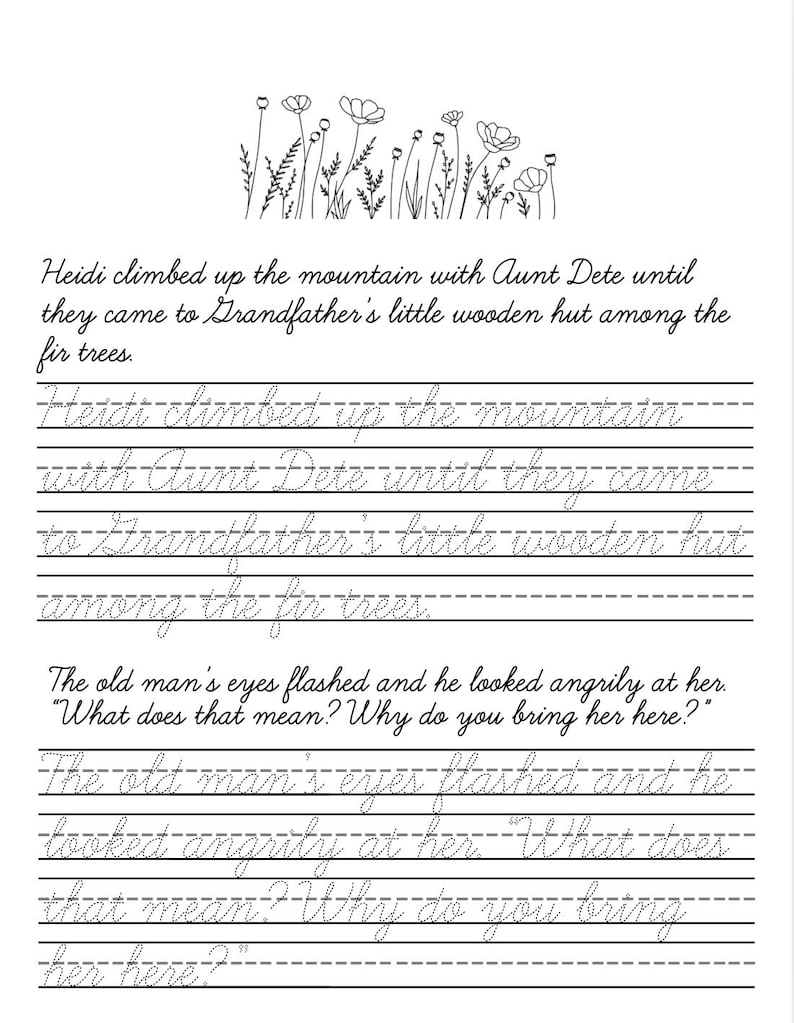 Heidi climbed up the mountain with Aunt Dete until
they came to Grandfather's little wooden hut among the
fir trees.
Heidi climbed up the mountain
with Aunt Dete until they came
to Grandfather's little wooden hut
among the fir trees.
The old man's eyes flashed and he looked angrily at her.
"What does that mean? Why do you bring her here?"
The old man's eyes flashed and he
looked angrily at her. "What does
that mean? Why do you bring
her here?"